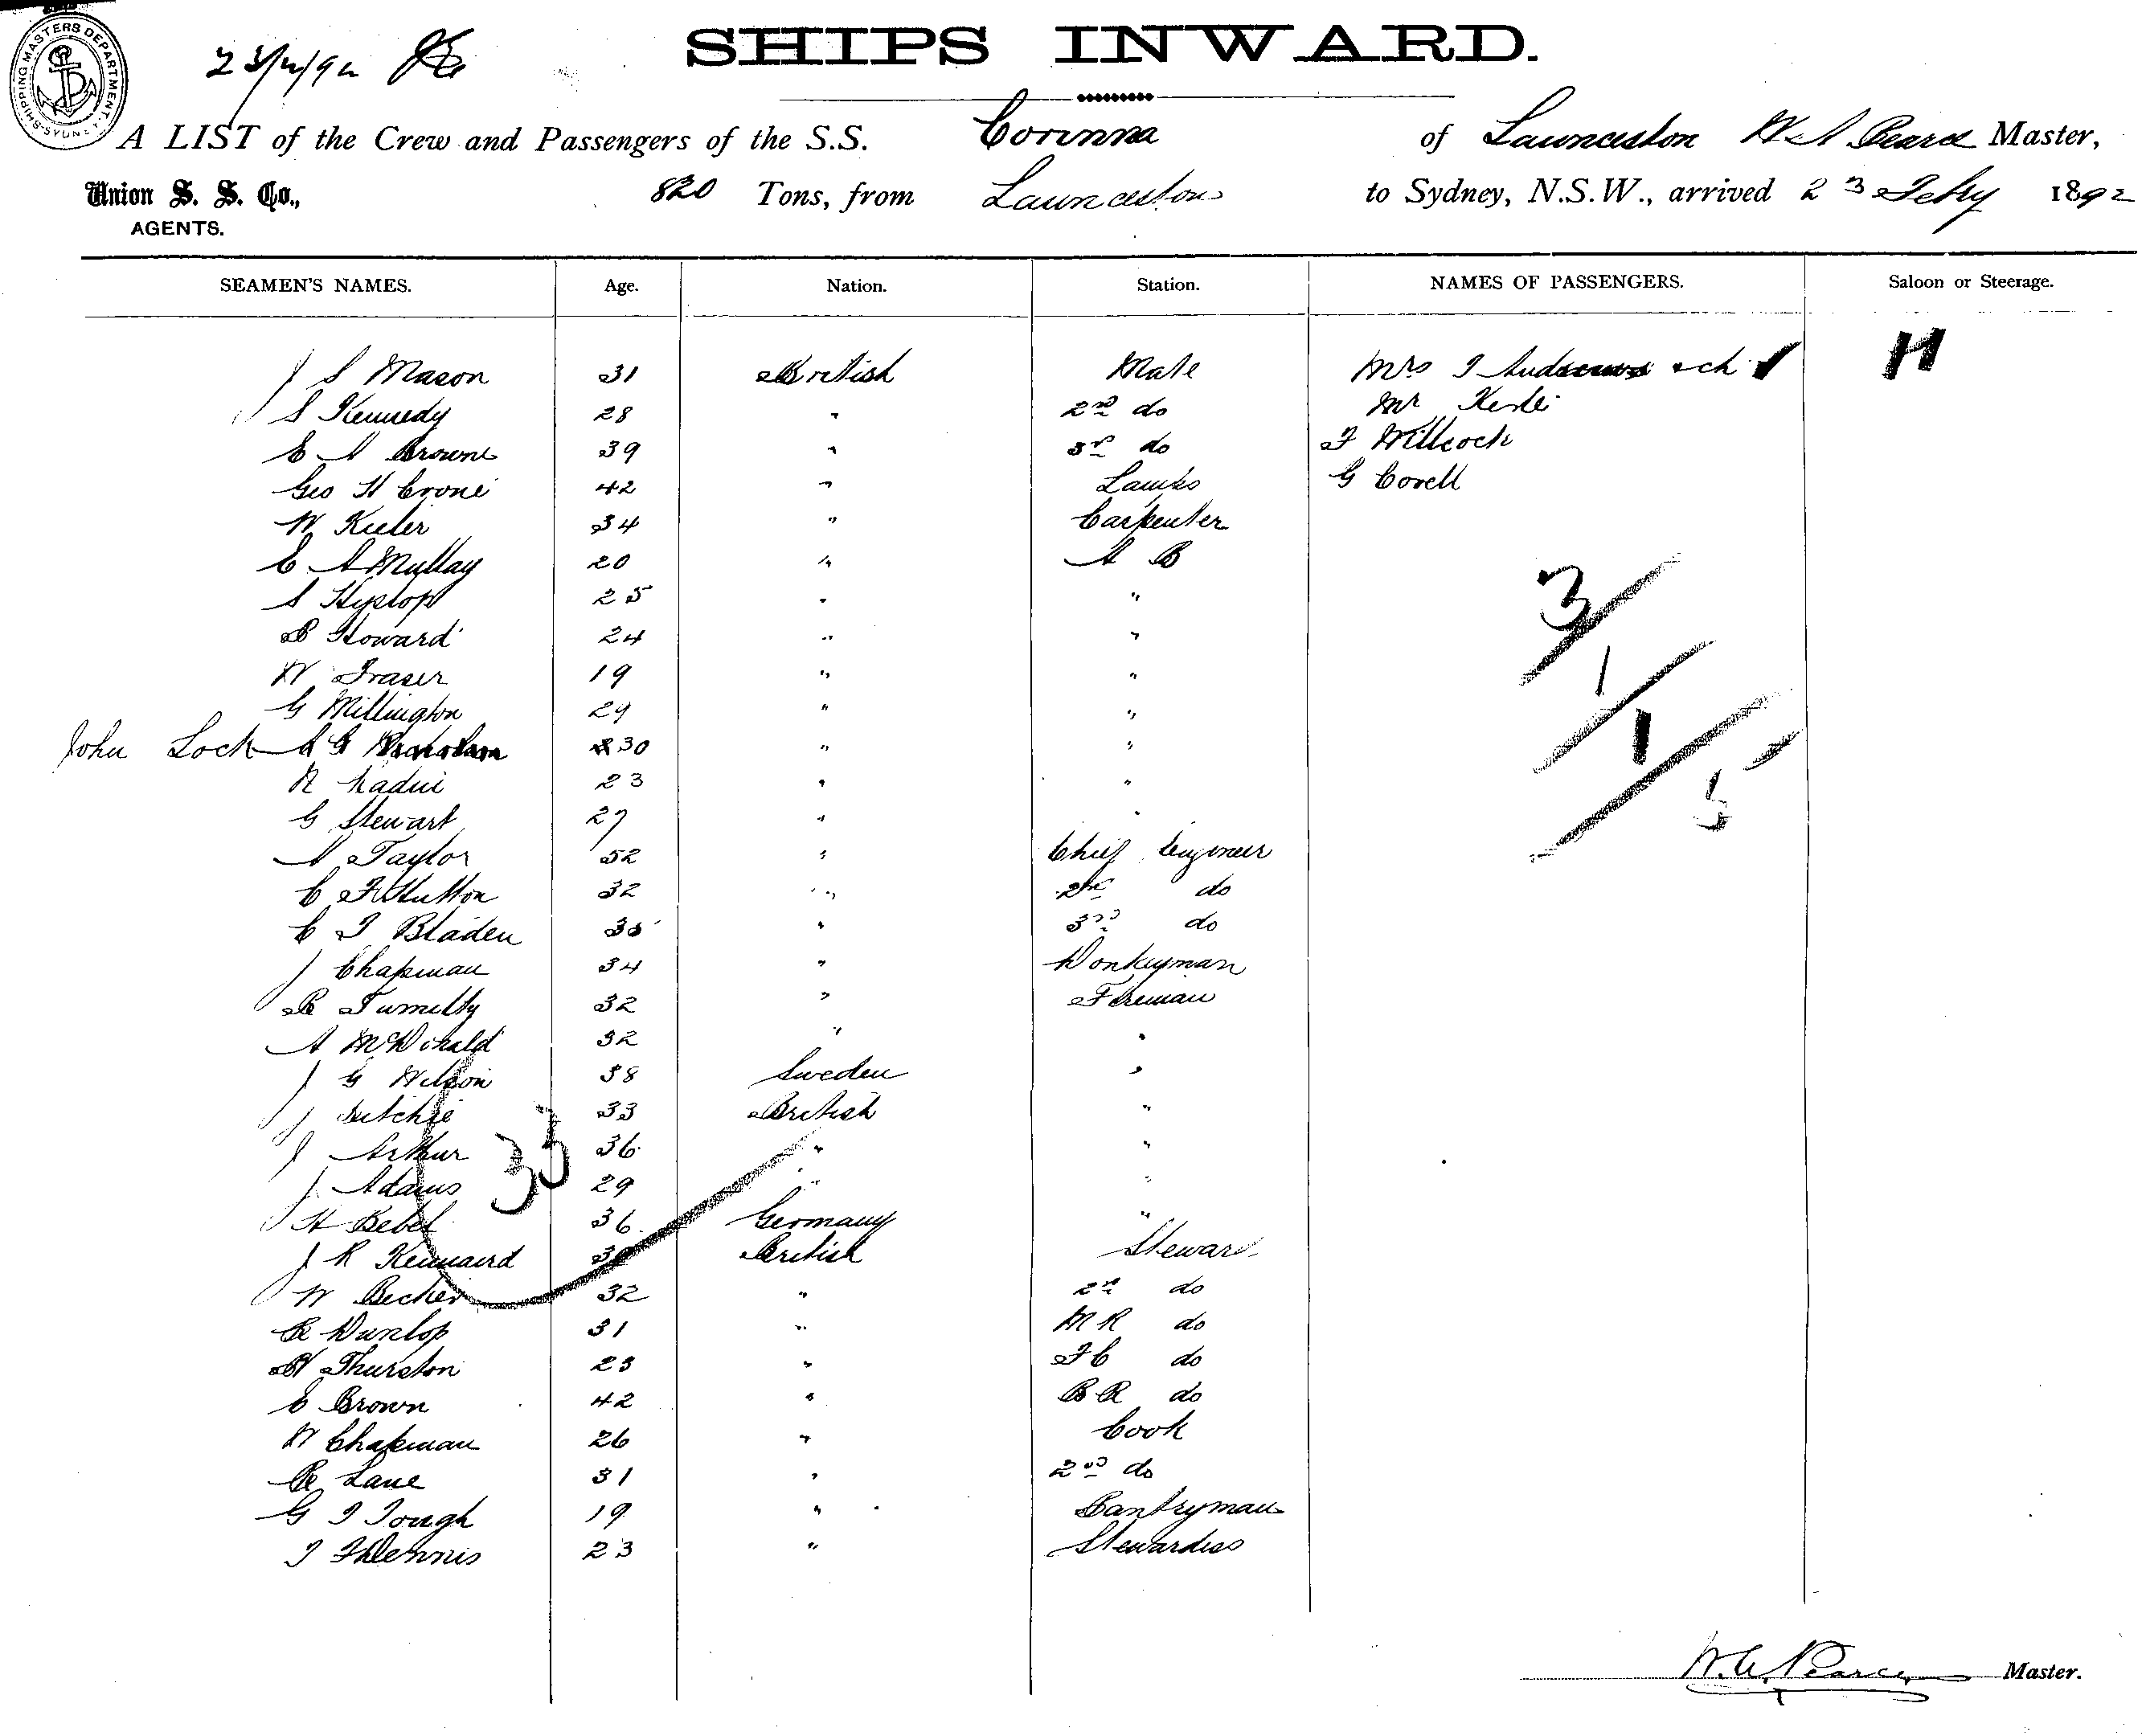 SHIPPING MASTERS DEPARTMENT. SYDNEY
23/2/92
SHIPS INWARD.
A LIST of the Crew and Passengers of the S.S. Corinna of Launceston W A Pearce Master,
Union S. S. Co., 820 Tons, from Launceston to Sydney, N.S.W., arrived 23 Feby 1892
AGENTS.
SEAMEN'S NAMES. Age. Nation. Station. NAMES OF PASSENGERS. Saloon or Steerage.
J S Mason 31 British Mate Mrs J Andrews & ch 1 H
S Kennedy 28 " 2nd do Mr
E A Browne 39 " 3rd do F Willcock
Geo H Crone 42 " Lamps G Covell
W Keeler 34 " Carpenter
E A Mullay 20 " A B
S Hyslop 25 " "
B Howard 24 " "
W Fraser 19 " "
G Millington 29 " "
John Lock A G 30 " "
R 23 " "
G Stewart 27 " "
A Taylor 52 " Chief Engineer
C F Hutton 32 " 2nd do
C J Bladen " 3rd do
J Chapman 34 " Donkeyman
R Tumilty 32 " Fireman
A McDonald 32 " "
J G Nelson 38 Sweden "
J Ritchie 33 British "
J Arthur 36 " "
J Adams 29 " "
H Bebel 36 Germany "
J R Kennaird British Steward
W Becher 32 " 2nd do
R Dunlop 31 " M R do
H Thurston 23 " F C do
E Brown 42 " B R do
W Chapman 26 " Cook
R Lane 31 " 2nd do
G J Tough 19 " Pantryman
J F Dennis 23 " Stewardess
33
3/
1/
1/
5
W. A. Pearce Master.